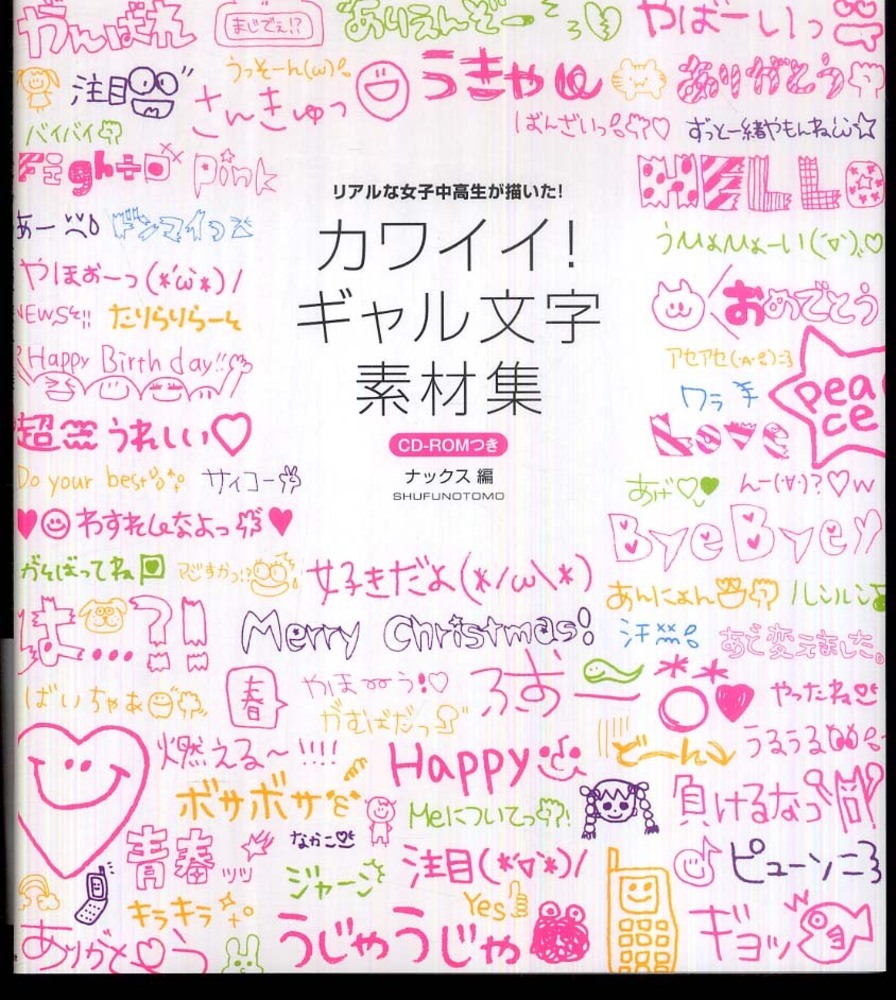 がんばれ
まじでぇ!?
ありえんぞー
やばーいっ
注目
うっそーん(ω)
うきゃ
ありがとう
さんきゅっ
バイバイ
ばんざいっ
ずっと一緒やもんね
Fight
Pink
HELLO
リアルな女子中高生が描いた!
あー
ドンマイっ
カワイイ!
うれぴょーい(´▽`)
やほぉーっ(*´ω`*)/
ギャル文字
おめでとう
NEWS!!
たりらりらーん
Happy Birthday!!
素材集
アセアセ
ワラ
peace
超
うれしい
CD-ROMつき
Love
Do your best
サイコー
ナックス 編
SHUFUNOTOMO
あげ
んー(・∀・)?♡w
わすれんなよっ
Bye Bye
がんばってね
マジすかっ!?
好きだよ(*/ω\*)
あんにょん
ルンルン
は…?!
Merry Christmas!
汗
あど変えました。
ばいちゃぁ
春
やほーう!♡
がむばだっ
やったね
燃える〜!!!!
Happy
どーん
うるうる
ボサボサ
Meについてっ?!
負けるなっ
青春ッッ
なかこ
注目(*´▽`*)/
ピューン
ジャーン
キラキラ
Yes
ありがとう
うじゃうじゃ
ギョッ